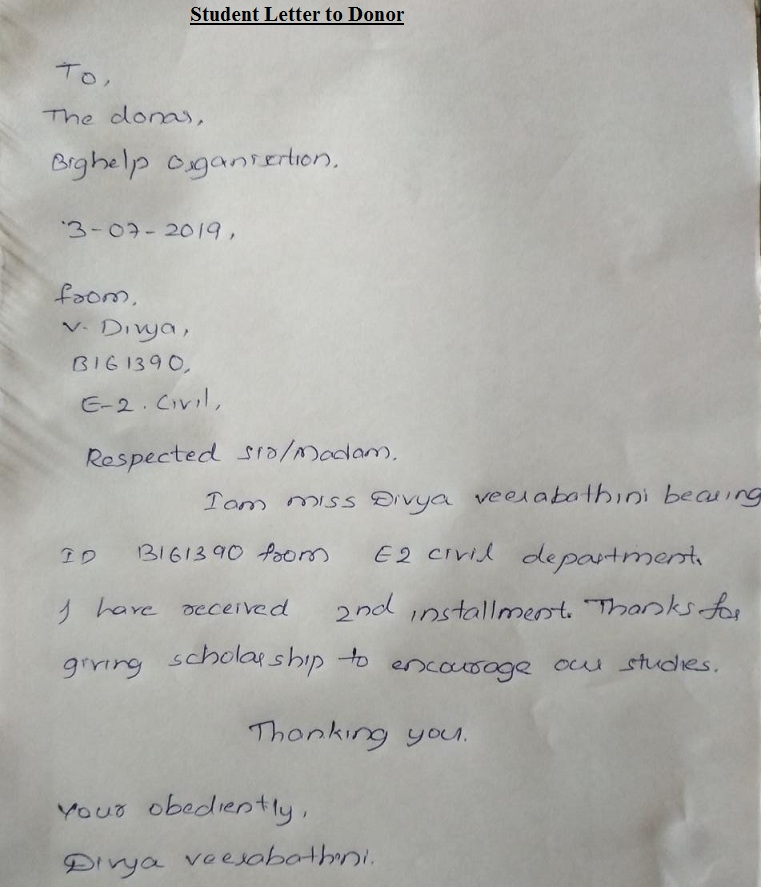 Student Letter to Donor
To,
The donar,
Bighelp organisertion.
3-07-2019,
from,
V. Divya,
B161390,
E-2. Civil,
Respected sir/Madam.
I am miss Divya veerabathini bearing
ID B161390 from E2 civil department.
I have received 2nd installment. Thanks for
giving scholarship to encourage our studies.
Thanking you.
Your obediently,
Divya veerabathini.